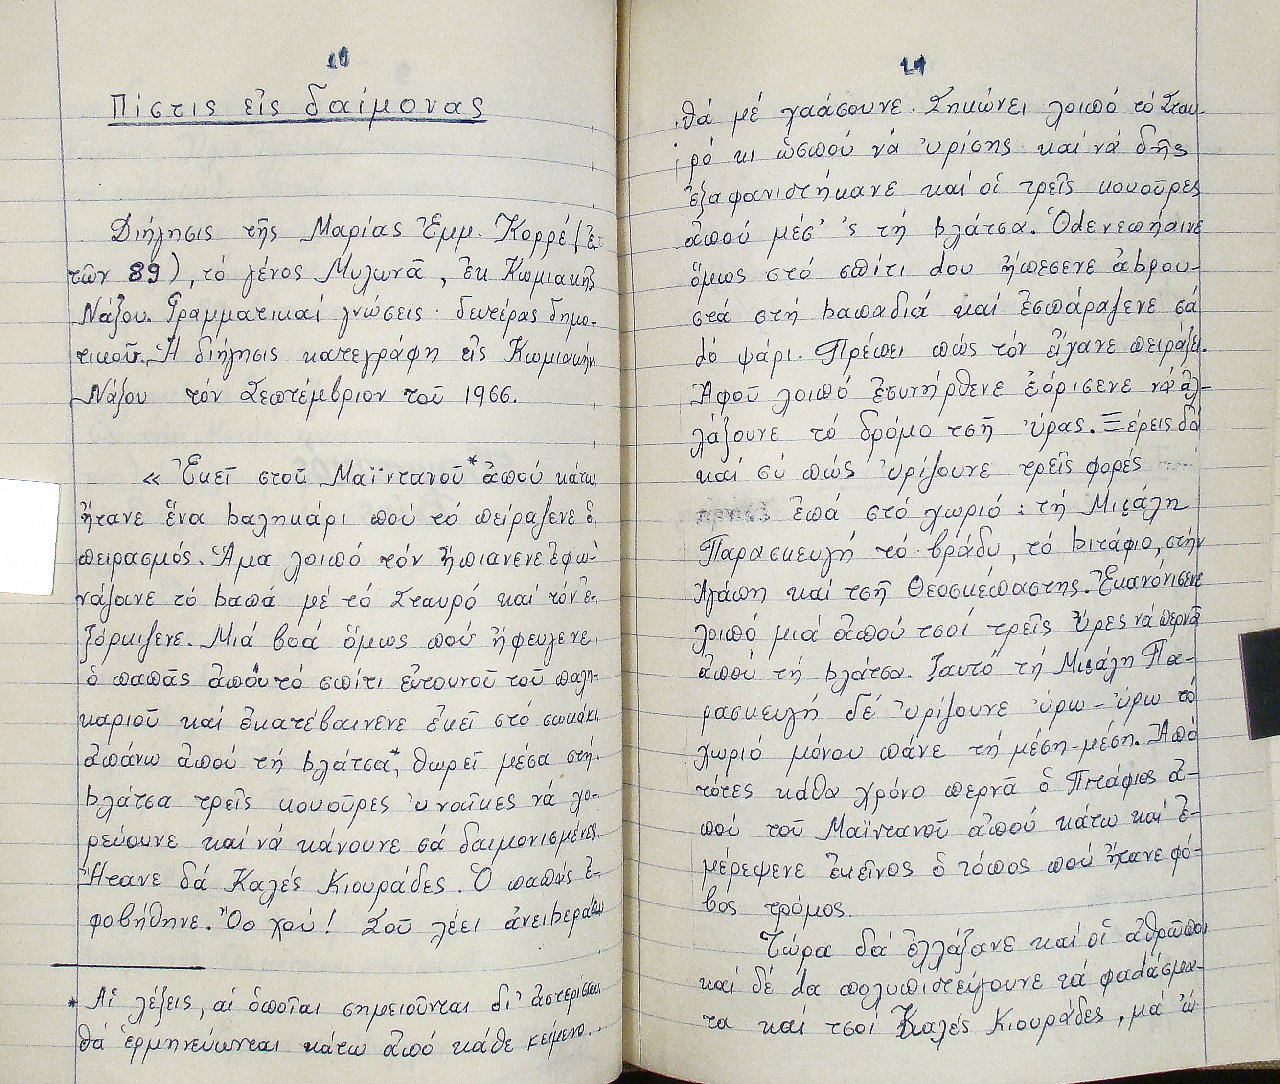 10
Πίστις εἰς δαίμονας
Διήγησις τῆς Μαρίας Ἐμμ. Κορρέ (ἐ-
τῶν 89), τό γένος Μυλωνᾶ, ἐκ Κωμιακῆς
Νάξου. Γραμματικαί γνώσεις· δευτέρας δημο-
τικοῦ. Ἡ διήγησις κατεγράφη εἰς Κωμιακήν
Νάξου τόν Σεπτέμβριον τοῦ 1966.
« Ἐκεῖ στοῦ Μαϊντανοῦ* ἀπού κάτω
ἤτανε ἕνα bαληκάρι πού τό πείραζενε ὁ
πειρασμός. Ἅμα λοιπό τόν ἤπιανενε ἐφω-
νάζανε τό bαπά μέ τό Σταυρό και τόν ἐ-
ξόρκιζενε. Μιά βοά ὅμως πού ἤφευγενε
ὁ παπᾶς ἀπού τό σπίτι εὐτουνοῦ τοῦ παλη-
καριοῦ καί ἐκατέβαινενε ἐκεῖ στό σωκάκι
ἀπάνω ἀπού τή bλάτσα*, θωρεῖ μέσα στή
bλάτσα τρεῖς κουοῦρες ὑναῖκες νά χο-
ρεύουνε καί νά κάνουνε σά δαιμονισμένες.
Ἤτανε δά Καλές Κιουράδες. Ὁ παπᾶς ἐ-
φοβήθηνε. Ὄο χού! Σοῦ λέει ἀνεβεράσω
* Αἱ λέξεις, αἱ ὁποῖαι σημειοῦνται δι' ἀστερίσκου
θά ἑρμηνεύωνται κάτω ἀπό κάθε κείμενο.
11
θά μέ χαάσουνε. Σηκώνει λοιπό τό Σταυ-
ρό κι ὡσπού νά ὑρίσης καί νά δῆς
ἐξαφανιστήκανε καί οἱ τρεῖς κουοῦρες
ἀπού μέσ' 'ς τή bλάτσα. Ὅdενεπήαινε
ὅμως στό σπίτι dου ἤπεσενε ἀbρου-
στά στή bαπαδιά καί ἐσπάραζενε σά
dό ψάρι. Πρέπει πώς τόν εἴχανε πειράξει.
Ἀφοῦ λοιπό ἐσυνήρθενε ἐόρισενε νά ἀλ-
λάξουνε τό δρόμο τσῆ ὑρας. Ξέρεις dο
καί σύ πώς ὑρίζουνε τρεῖς φορές
ἐπά στό χωριό : τή Μιςάλη
Παρασκευγή τό βράδυ, τό bιτάφιο, στήν
Ἀγάπη καί τσῆ Θεοσκέπαστης. Ἐκανόνισενε
λοιπό μιά ἀπού τσοί τρεῖς ὑρες νά περνᾶ
ἀπού τή bλάτσα. Γιαυτό τή Μιςάλη Πα-
ρασκευγή δέ ὑρίζουνε ὑρω - ὑρω τό
χωριό μόνου πάνε τή μέση-μέση. Ἀπό
τότες κάθα χρόνο περνᾶ ὁ Πιτάφιος ἀ-
πού τοῦ Μαϊντανοῦ ἀπού κάτω καί ἐ-
μέρεψενε ἐκεῖνος ὁ τόπος πού ἤτανε φό-
βος τρόμος.
Τώρα δά ἐλλάξανε καί οἱ ἀθρῶποι
καί δέ dα πολυπιστεύγουνε τά φαdάσμα-
τα καί τσοί Καλές Κιουράδες, μά ὡ-